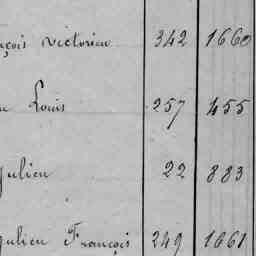 victorien 342 1660
Louis 257 455
Julien 22 883
Julien François 249 1661